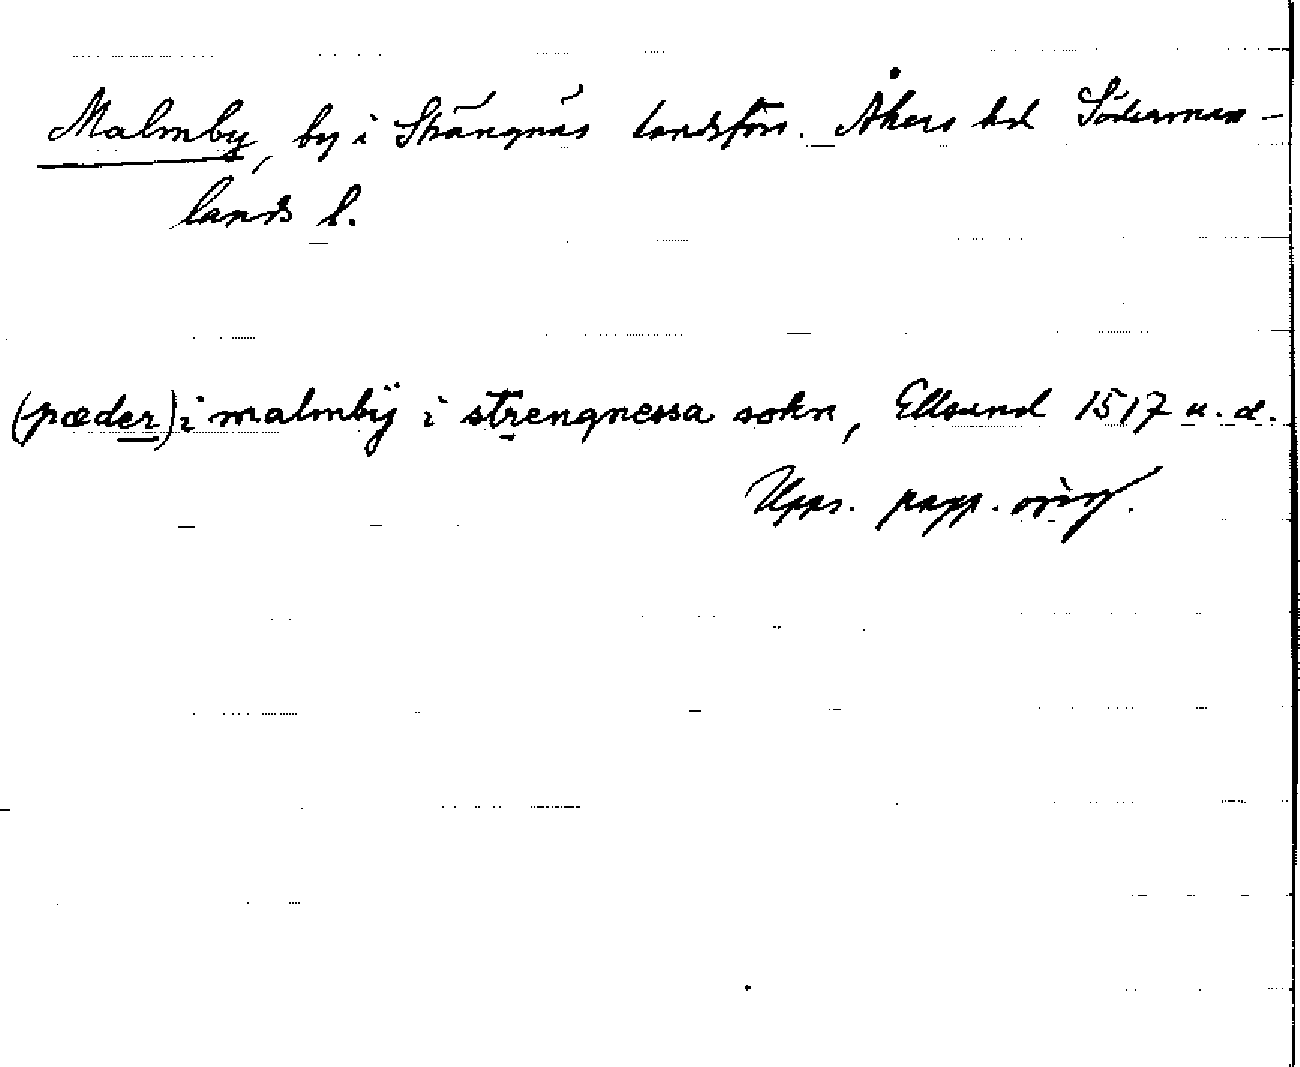 Malmby, by i Strängnäs landsförs. Åkers hd Söderman-
lands l.
(pæder) i malmbÿ i strengnessa sokn, Ellsund 1517 u. d.
Upps. papp. orig.